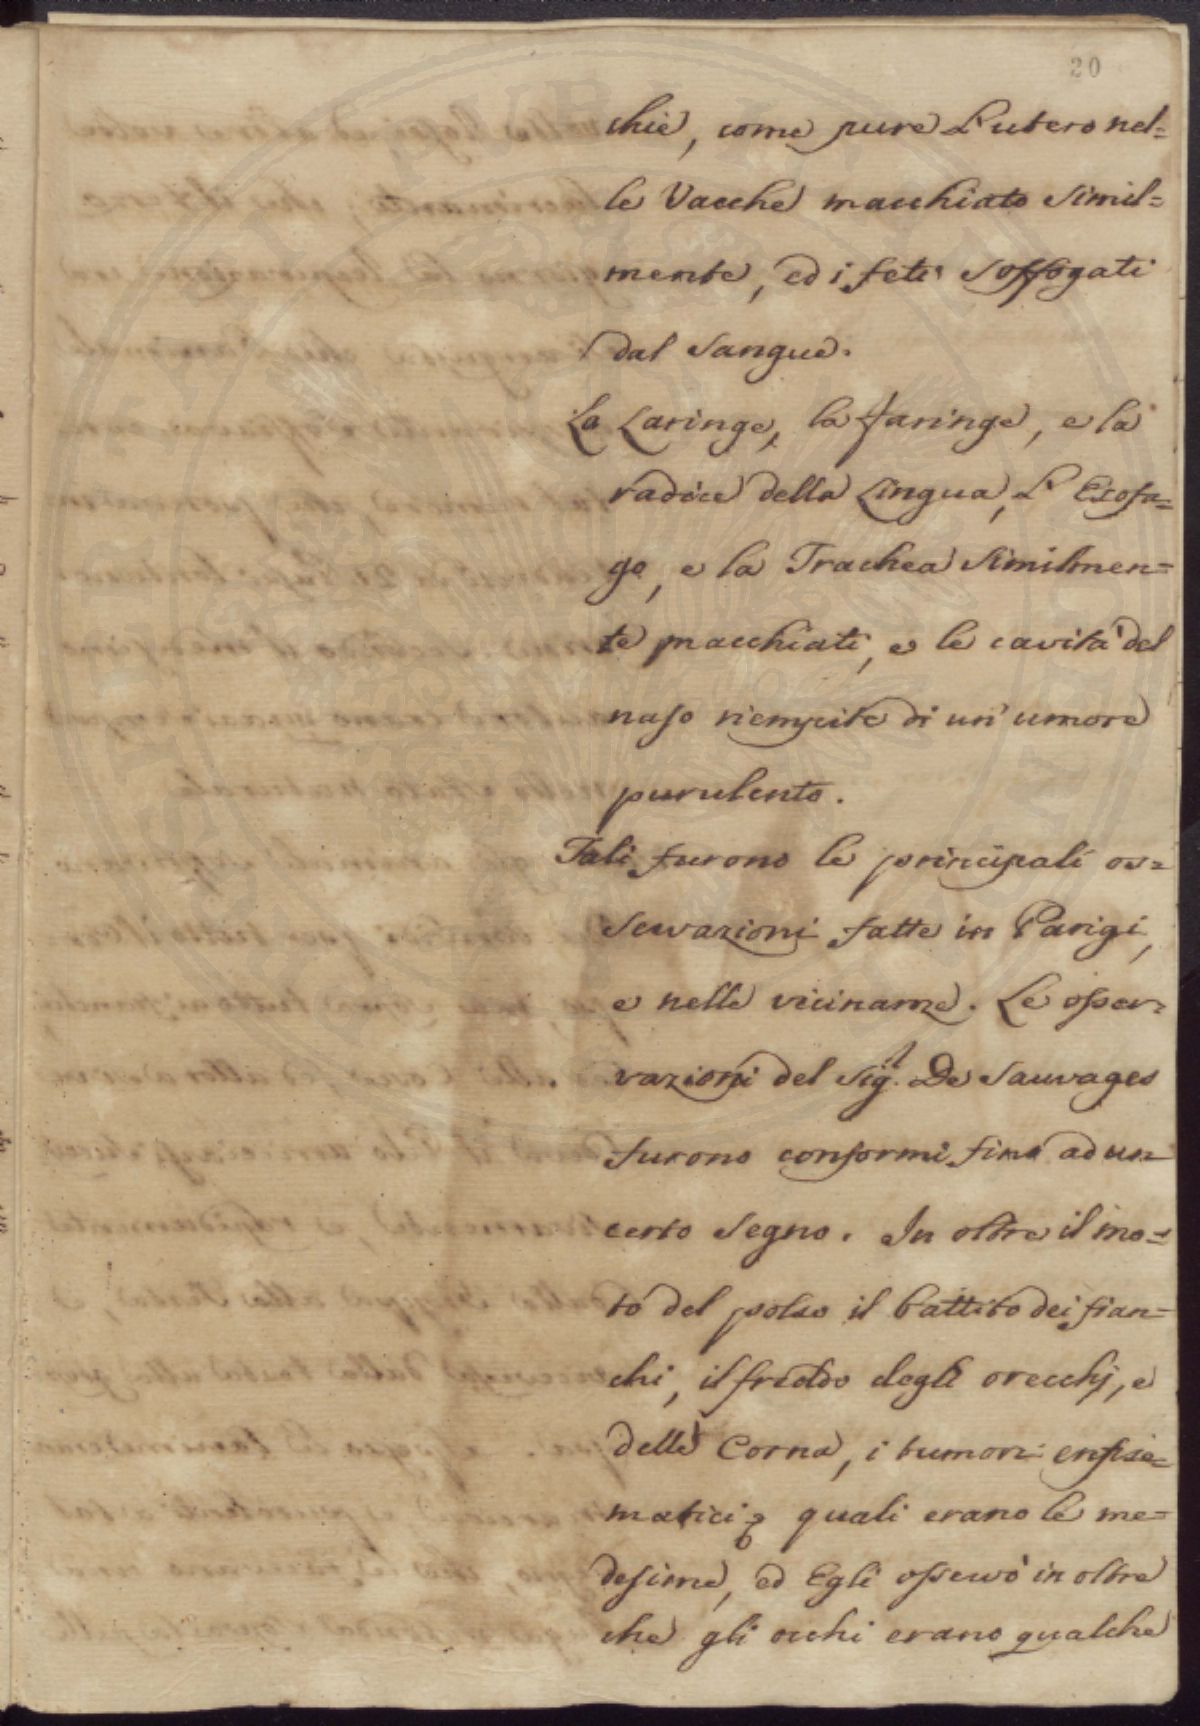 20
chie, come pure L'utero nel=
le Vacche macchiato simil=
mente, ed i feti soffogati
dal sangue.
La Laringe, la faringe, e la
radice della Lingua, L'Esofa=
go, e la Trachea similmen=
te macchiati, e le cavità del
naso riempite di un'umore
purulento.
Tali furono le principali os=
servazioni fatte in Parigi,
e nelle vicinanze. Le osser=
vazioni del Sig.r De Sauvages
furono conformi fino ad un
certo segno. In oltre il mo=
to del polso il battito dei fian=
chi, il freddo degli orecchj, e
delle Corna, i tumori enfise=
matici quali erano le me=
desime, ed Egli osservò in oltre
che gli occhi erano qualche